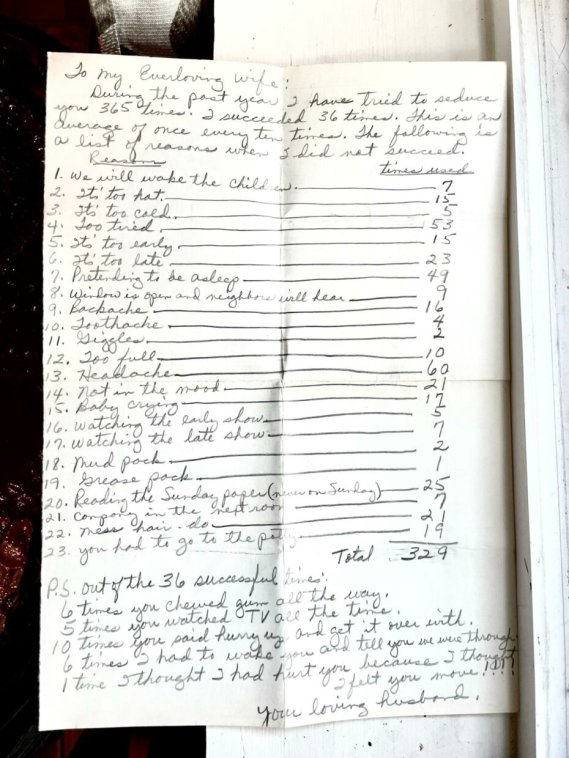 To My Everloving Wife:
During the past year I have tried to seduce
you 365 times. I succeeded 36 times. This is an
average of once every ten times. The following is
a list of reasons when I did not succeed.
Reason times used
1. We will wake the children. 7
2. It's too hot. 15
3. It's too cold. 5
4. Too tired. 53
5. It's too early. 15
6. It's too late. 23
7. Pretending to be asleep 49
8. Window is open and neighbors will hear 9
9. Backache 16
10. Toothache 4
11. Giggles 2
12. Too full 10
13. Headache 60
14. Not in the mood 21
15. Baby crying 17
16. Watching the early show 5
17. Watching the late show 7
18. Mud pack 2
19. Grease pack 1
20. Reading the Sunday paper (never on Sunday) 25
21. Company in the next room 7
22. Mess hair-do 21
23. you had to go to the potty 19
Total 329
P.S. out of the 36 successful times:
6 times you chewed gum all the way.
5 times you watched TV all the time.
10 times you said hurry up and get it over with.
6 times I had to wake you and tell you we were through
1 time I thought I had hurt you because I thought
I felt you move!!!!
Your loving husband.